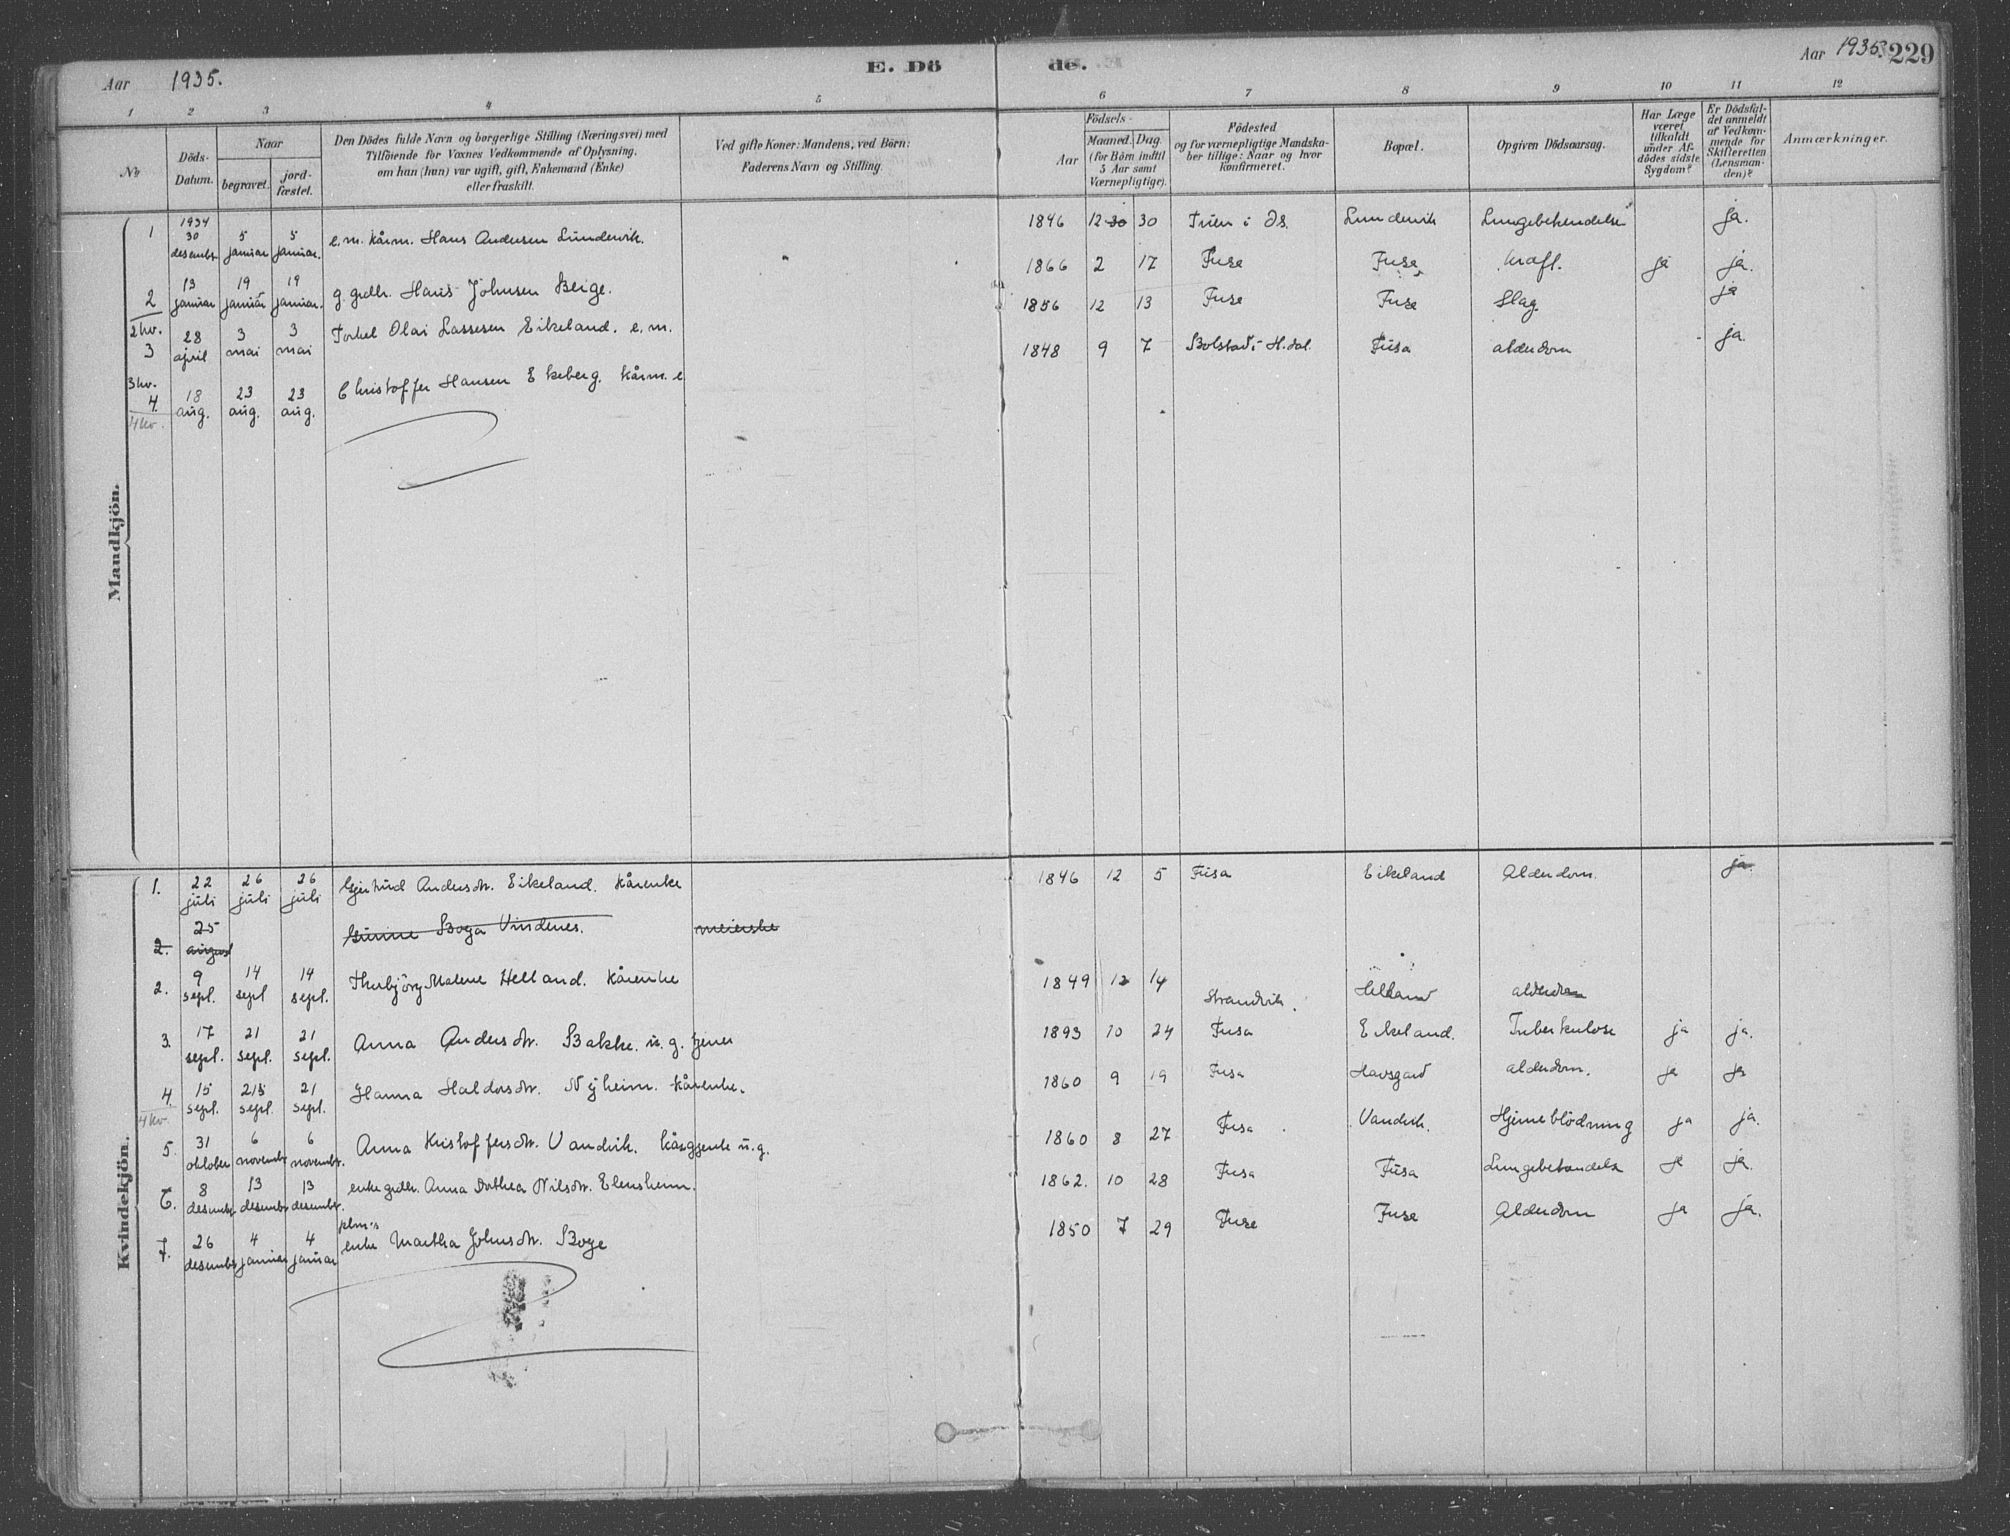 Aar 1935.
E. Dö de.
Aar 1935. 229
1 2 3 4 5 6 7 8 9 10 11 12
No
Döds-Datum.
Naar
begravet.
jord-fæstet.
Den Dödes fulde Navn og borgerlige Stilling (Næringsvei) med
Tilföiende for Voxnes Vedkommende af Oplysning,
om han (hun) var ugift, gift, Enkemand (Enke)
eller fraskilt.
Ved gifte Koner: Mandens, ved Börn:
Faderens Navn og Stilling.
Födsels-
Aar
Maaned. Dag.
(for Börn indtil
5 Aar samt
Værnepligtige).
Födested
og for værnepligtige Mandska-
ber tillige: Naar og hvor
konfirmeret.
Bopæl.
Opgiven Dödsaarsag.
Har Læge
været
tilkaldt
under Af-
dödes sidste
Sygdom?
Er Dödsfal-
det anmeldt
af Vedkom-
mende for
Skifteretten
(Lensman-
den)?
Anmærkninger.
Mandkjön.
1 1934 30 desembr. 5 januar 5 januar. e.m. kårm. Hans Andersen Lundervik. 1846 12 30 30 i Os. Lundervik Lungebetendelse ja.
2 13 januar 19 januar 19 januar. g. grdbr. Hans Johnsen Berge. 1866 2 17 Fusa Fusa kræft. ja ja.
2 kv.
3 28 april 3 mai 3 mai Torkel Olai Lassesen Eikeland. e.m. 1856 12 13 Fusa Fusa Slag ja
3 kv.
4. 18 aug. 23 aug. 23 aug. Christoffer Hansen Ekeberg. kårm. e. 1848 9 7 Bolstad i H.dal Fusa alderdom ja.
4 kv.
Kvindekjön.
1. 22 juli 26 juli 26 juli Gjertrud Andersdtr. Eikeland. Kårenke 1846 12 5 Fusa Eikeland Alderdom. ja.
2. 25 august Boga Vindenes. meierske
2. 9 sept. 14 sept 14 sept. Thorbjörg Malene Helland. Kårenke 1849 12 14 Strandvik. Helland alderdom
3. 17 sept. 21 sept. 21 sept. Anna Andersdtr. Bakke. u.g. tjener 1893 10 24 Fusa Eikeland. Tuberkulose ja ja.
4. 15 sept. 21 sept. 21 sept. Hanna Haldorsdtr. Nyheim. kårenke. 1860 9 19 Fusa Havsgard alderdom. ja ja
4 kv.
5. 31 oktober 6 novembr. 6 novembr. Anna Kristoffersdtr. Vandvik. kårgjente u.g. 1860 8 27 Fusa Vandvik. Hjerneblödning ja ja.
6. 8 desembr. 13 desembr. 13 desembr. enke grdbr. Anna Dorthea Nilsdtr. Elensheim. 1862. 10 28 Fusa Fusa Lungebetendelse ja ja.
7. 26 desembr. 4 januar 4 januar plm.s enke Martha Johnsdtr. Boge 1850 7 29 Fusa Fusa Alderdom ja ja.